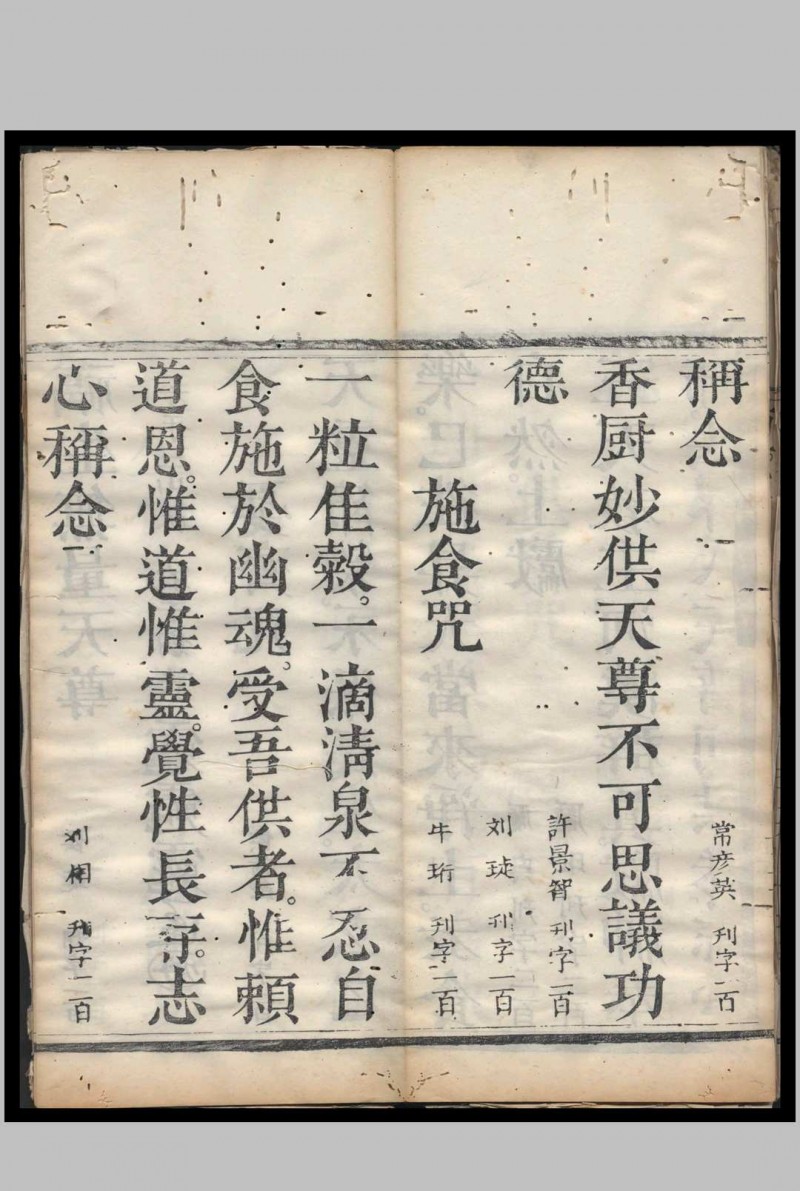 稱念
常彦英 刊字一百
香厨妙供天尊不可思議功
德
許景智 刊字一百
刘 刊字一百
施食咒
牛珩 刊字一百
一粒佳糓。一滴清泉不忍自
食施於幽魂。受吾供者。惟賴
道恩。惟道惟靈。覺性長存。志
心稱念
刘相 刊字一百